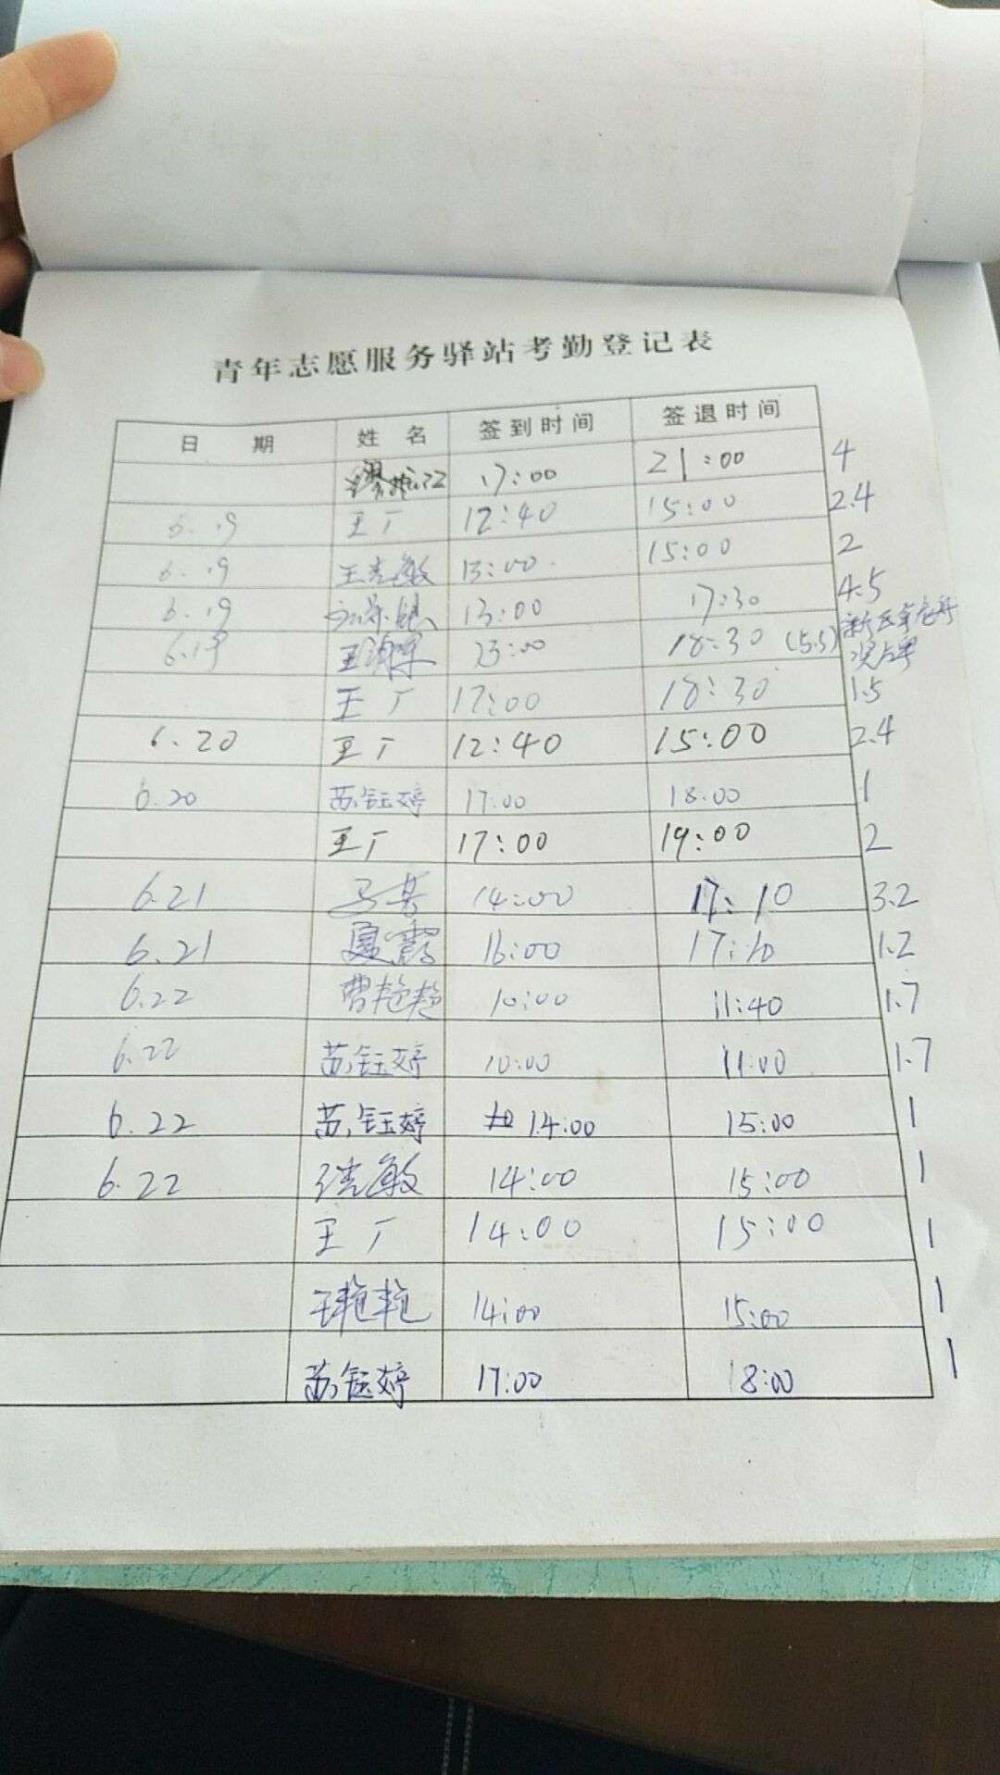 青年志愿服务驿站考勤登记表
日 期 姓 名 签到时间 签退时间
17:00 21:00 4
6.19 王厂 12:40 15:00 2.4
6.19 王志敏 13:00 15:00 2
6.19 13:00 17:30 4.5
6.19 王 13:00 18:30 (5.5)
王厂 17:00 18:30 1.5
6.20 王厂 12:40 15:00 2.4
6.20 苏钰婷 17:00 18:00 1
王厂 17:00 19:00 2
6.21 14:00 17:10 3.2
6.21 夏霞 16:00 17:10 1.2
6.22 曹艳艳 10:00 11:40 1.7
6.22 苏钰婷 10:00 11:00 1.7
6.22 苏钰婷 14:00 15:00 1
6.22 敏 14:00 15:00 1
王厂 14:00 15:00 1
王艳艳 14:00 15:00 1
苏钰婷 17:00 18:00 1